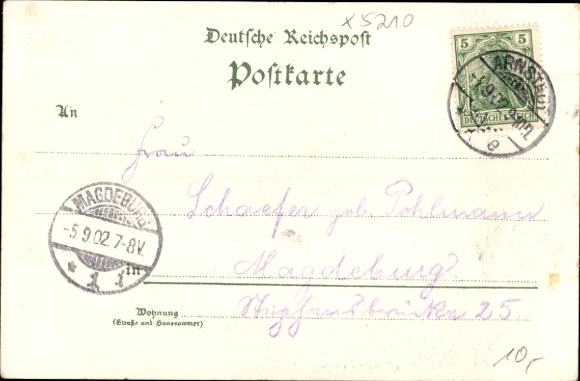 x 5210
Deutsche Reichspost
Postkarte
5 5
DEUTSCHES REICH
ARNSTADT
An
Frau
Schaefer geb. Pohlmann
MAGDEBURG
-5.9.02.7-8V.
* 1 1
in Magdeburg
Wohnung Stephansbrücke 25.
(Straße und Hausnummer)
10,-